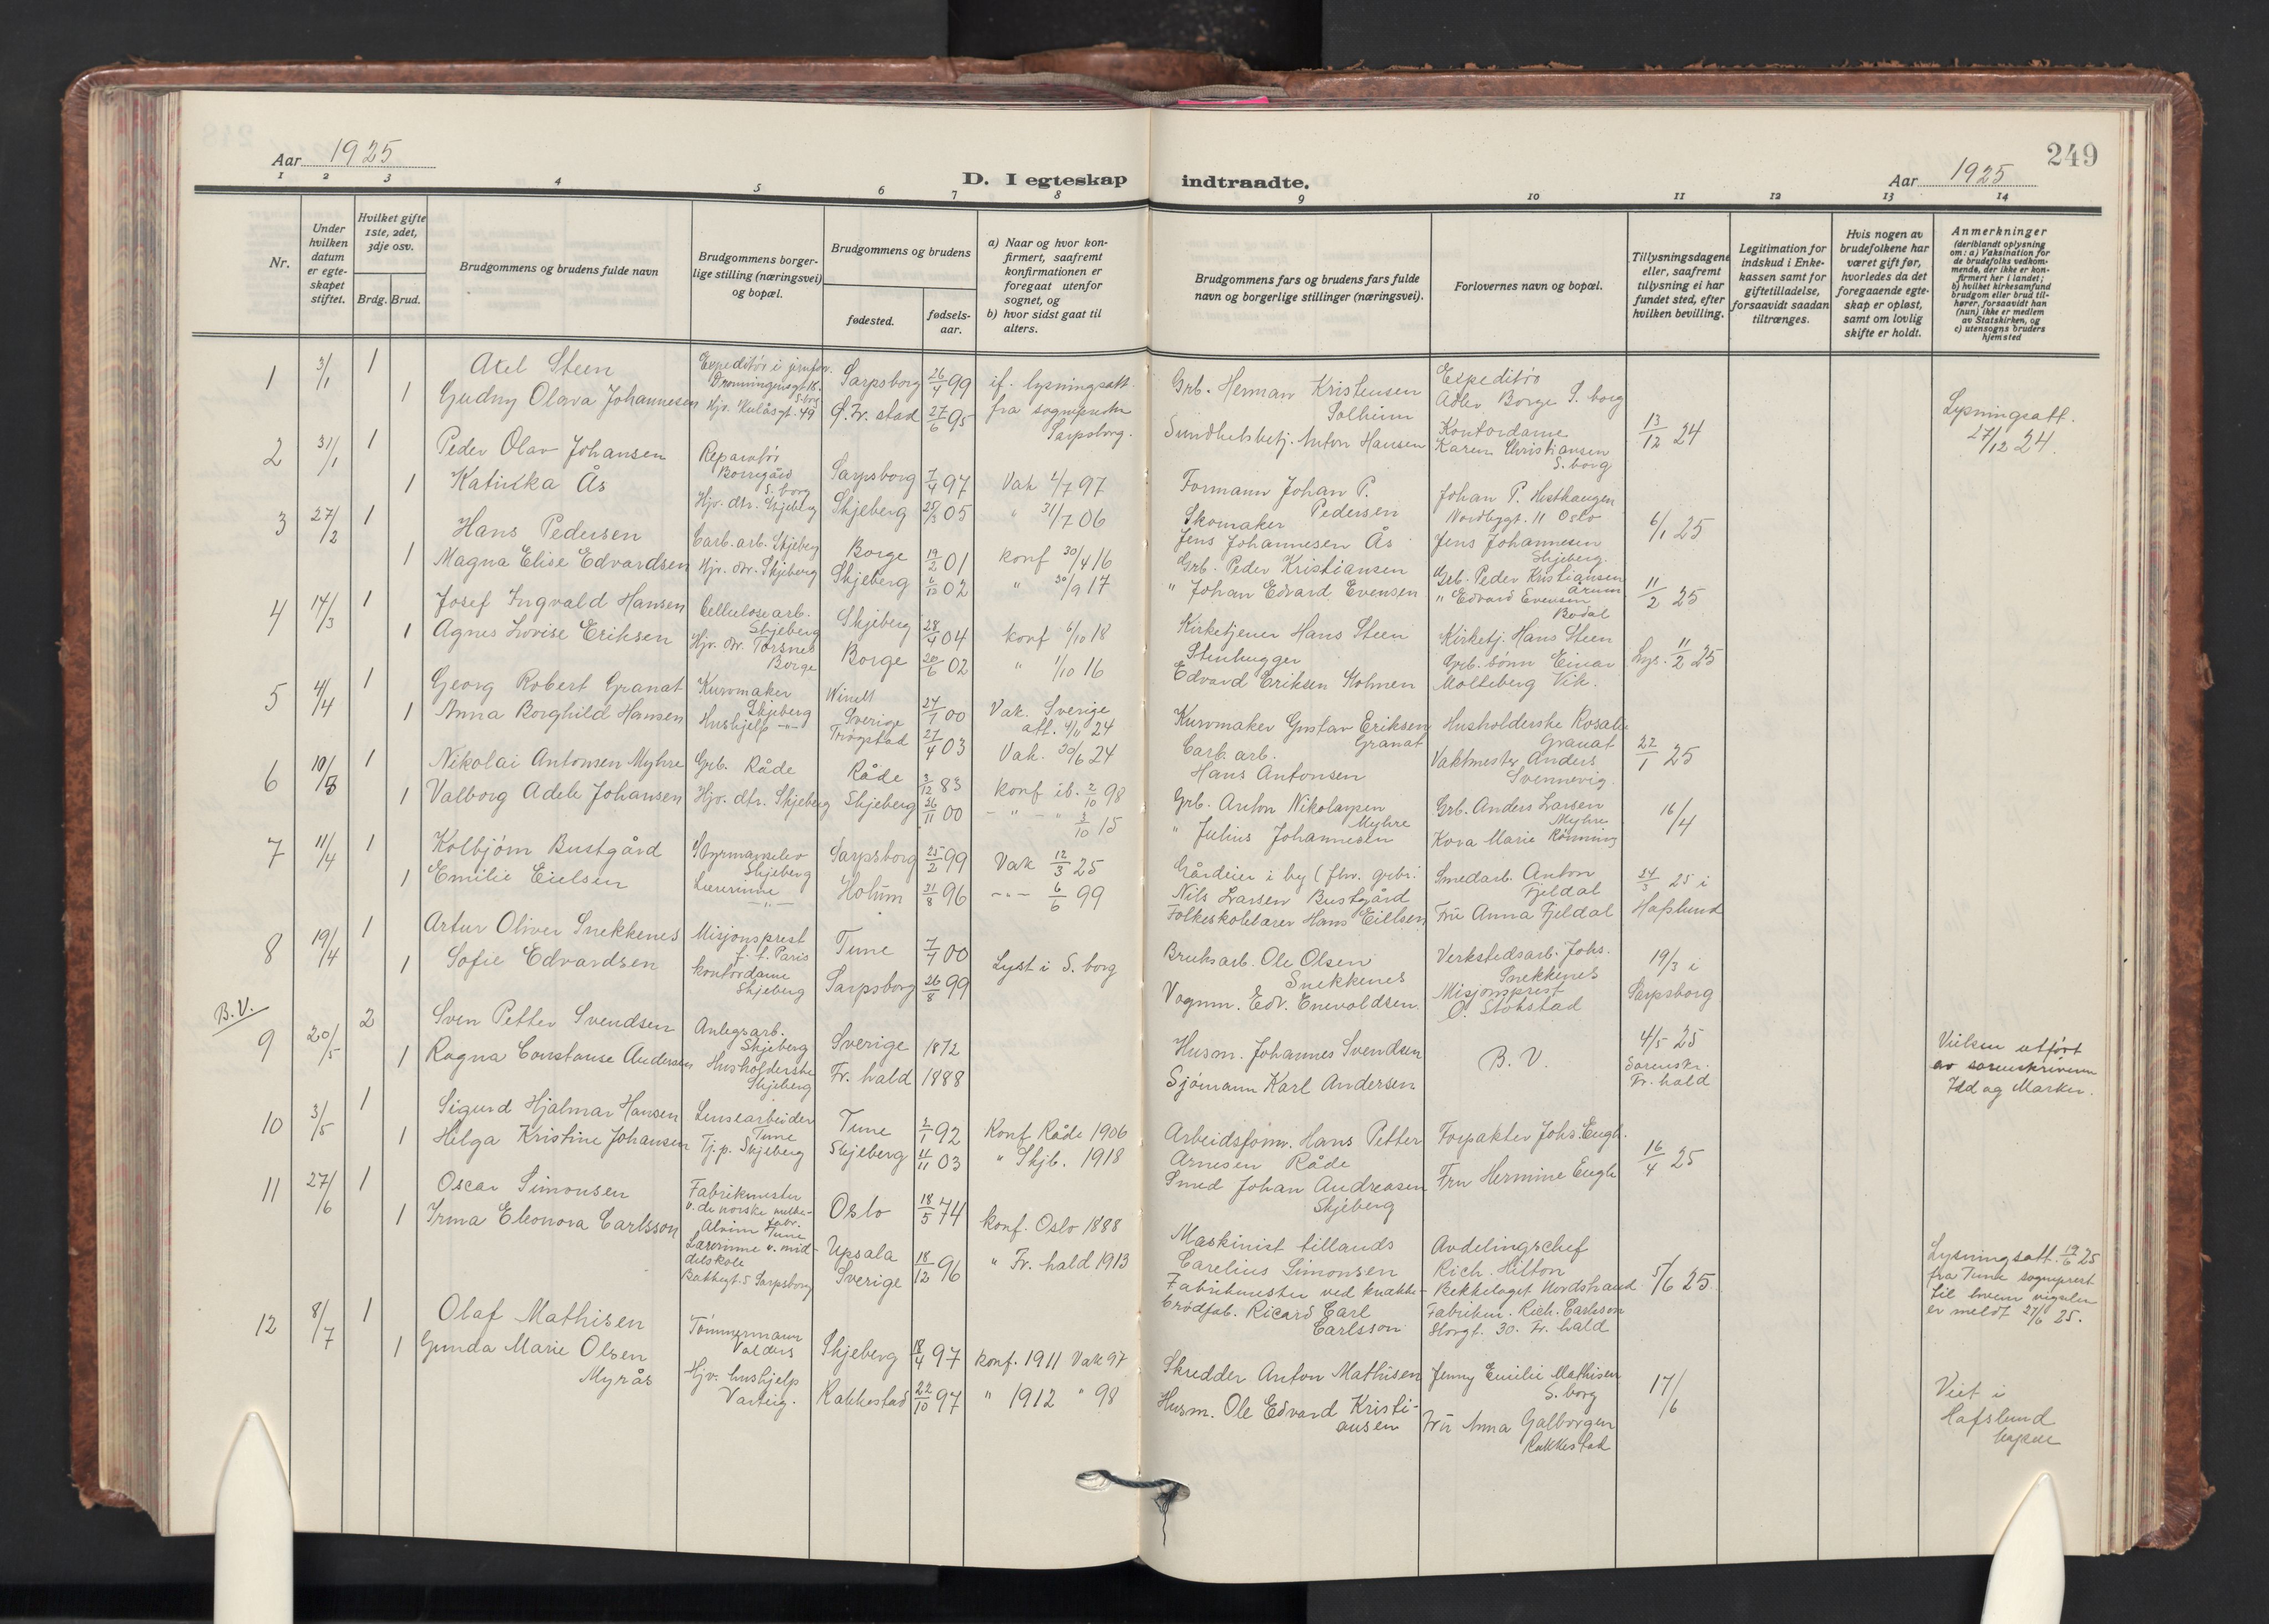 Aar 1925
D. I egteskap indtraadte.
Aar 1925
249
1 2 3 4 5 6 7 8 9 10 11 12 13 14
Nr.
Under hvilken datum er egteskapet stiftet.
Hvilket gifte 1ste, 2det, 3dje osv.
Brdg. Brud.
Brudgommens og brudens fulde navn
Brudgommens borgerlige stilling (næringsvei) og bopæl.
Brudgommens og brudens
fødested.
fødselsaar.
a) Naar og hvor konfirmert, saafremt konfirmationen er foregaat utenfor sognet, og
b) hvor sidst gaat til alters.
Brudgommens fars og brudens fars fulde navn og borgerlige stillinger (næringsvei).
Forlovernes navn og bopæl.
Tillysningsdagene eller, saafremt tillysning ei har fundet sted, efter hvilken bevilling.
Legitimation for indskud i Enkekassen samt for giftetilladelse, forsaavidt saadan tiltrænges.
Hvis nogen av brudefolkene har været gift før, hvorledes da det foregaaende egteskap er opløst, samt om lovlig skifte er holdt.
Anmerkninger
(deriblandt oplysning om: a) Vaksination for de brudefolks vedkommende, der ikke er konfirmert her i landet; b) hvilket kirkesamfund brudgom eller brud tilhører, forsaavidt han (hun) ikke er medlem av Statskirken, og c) utensogns bruders hjemsted
1 3/1 1 Axel Steen Expeditør i jernfor. Dronningensgt 18. S.brg Sarpsborg 26/4 99 if. lysningsatt. Grb. Herman Kristensen Solheim Expeditrs Adlev Borge S. borg 13/12 24 Lysningsatt. 27/12 24.
1 Gudny Olava Johannesen Hjv. Kulåsgt. 49 G. Fr. stad 27/6 95 fra sogneprsten Sarpsborg. Sundhetsbetj. Anton Hansen Kontordame Karen Christiansen S. borg
2 31/1 1 Peder Olav Johansen Reparatør Borregård S. borg Sarpsborg 7/4 97 Vak 2/7 97 Formann Johan P. Pedersen Johan P. Høsthaugen Nordbygt. 11 Oslo 6/1 25
1 Katinka Ås Hjv. dtr. Skjeberg Skjeberg 25/3 05 " 31/7 06 Skomaker Jens Johannesen Ås Jens Johannesen Skjeberg.
3 27/2 1 Hans Pedersen Carb. arb. Skjeberg Borge 19/2 01 konf 30/4 16 Grb. Peder Kristiansen Grb. Peder Kristiansen Årum 11/2 25
1 Magna Elise Edvardsen Hjv. dtr. Skjeberg Skjeberg 6/12 02 " 30/9 17 " Johan Edvard Evensen " Edvard Evensen Bodal
4 14/3 1 Josef Ingvald Hansen Cellulosearb. Skjeberg Skjeberg 28/4 04 konf 6/10 18 Kirketjener Hans Steen Kirketj. Hans Steen Lys. 11/2 25
1 Agnes Lovise Eriksen Hjv. dtr. Torsnes Borge Borge 20/6 02 " 1/10 16 Stenhugger Edvard Eriksen Holmen Grb. sønn Einar Molteberg Vik.
5 4/4 1 Georg Robert Granat Kurvmaker Skjeberg Sverige 24/7 00 Vak. Sverige att. 4/11 24 Kurvmaker Gustav Eriksen Granat Husholderske Rosalie Granat 22/1 25
1 Anna Borghild Hansen Hushjelp -"- Trøgstad 27/4 03 Vak. 30/6 24 Carb. arb. Hans Antonsen Vaktmester Anders Svennevig.
6 10/5 1 Nikolai Antonsen Myhre Grb. Råde Råde 3/12 83 konf ib. 2/10 98 Grb. Anton Nikolaysen Myhre Grb. Anders Larsen Myhre 16/4
1 Valborg Adele Johansen Hjv. dtr. Skjeberg Skjeberg 26/11 00 - " - " 3/10 15 " Julius Johannesen Kora Marie Rønning
7 11/4 1 Kolbjørn Bustgård Styrmannselev Skjeberg Sarpsborg 25/2 99 Vak 12/3 25 Gårdeier i by (fhv. grbr. Nils Larsen Bustgård Smedarb. Anton Fjeldal 24/3 25 i Hafslund
1 Emilie Eielsen Lærerinne -"- Holum 31/8 96 -"- 6/6 99 Folkeskolelærer Hans Eillsen Fru Anna Fjeldal
8 19/4 1 Artur Oliver Snekkenes Misjonsprest f. t. Paris Tune 7/7 00 Lyst i S. borg Bruksarb. Ole Olsen Snekkenes Verkstedsarb. Johs. Snekkenes 19/3 i Sarpsborg
1 Sofie Edvardsen kontordame Skjeberg Sarpsborg 26/8 99 Vognm. Edv. Enevoldsen. Misjonsprest O. Stokstad
B.V.
9 20/5 2 Sven Petter Svendsen Anlegsarb. Skjeberg Sverige 1872 Husm. Johannes Svendsen B. V. 4/5 25 Sorenskr. Fr. hald Vielsen utført av sorenskriveren Idd og Marker.
1 Ragna Constanse Andersen Husholderske Skjeberg Fr. hald 1888 Sjømann Karl Andersen
10 3/5 1 Sigurd Hjalmar Hansen Lensearbeider Tune Tune 2/1 92 Konf Råde 1906 Arbeidsform. Hans Petter Arnesen Råde Forpakter Johs. Engh. 16/4 25
1 Helga Kristine Johansen Tj. p. Skjeberg Skjeberg 11/11 03 " Skjb. 1918 Smed Johan Andreasen Skjeberg Fru Hermine Engh
11 27/6 1 Oscar Simonsen Fabrikmester v. de norske melke- fabr. Alvim Tune Oslo 18/5 74 konf. Oslo 1888 Maskinist tillands Carelius Simonsen Avdelingschef Rich. Hilton Bekkelaget Nordstrand 5/6 25 Lysningsatt. 19/6 25 fra Tune sogneprest til hvem vigselen er meldt 27/6 25.
1 Irma Eleonora Carlsson Lærerinne v. middelskole Bakkegt. 5 Sarpsborg Upsala Sverige 18/12 96 " Fr. hald 1913 Fabrikmester ved knække- brødfab. Ricard Carl Carlsson Fabrikm. Rich. Carlsson Storgt. 30. Fr. hald
12 8/7 1 Olaf Mathisen Tømmermann Valders Skjeberg 18/4 97 konf. 1911 Vak 97 Skredder Anton Mathisen Jenny Emilie Mathisen S. borg 17/6 Viet i Hafslund
1 Gunda Marie Olsen Myrås Hjv. hushjelp Varteig. Rakkestad 22/10 97 " 1912 " 98 Husm. Ole Edvard Kristiansen Fru Anna Galborgen Rakkestad